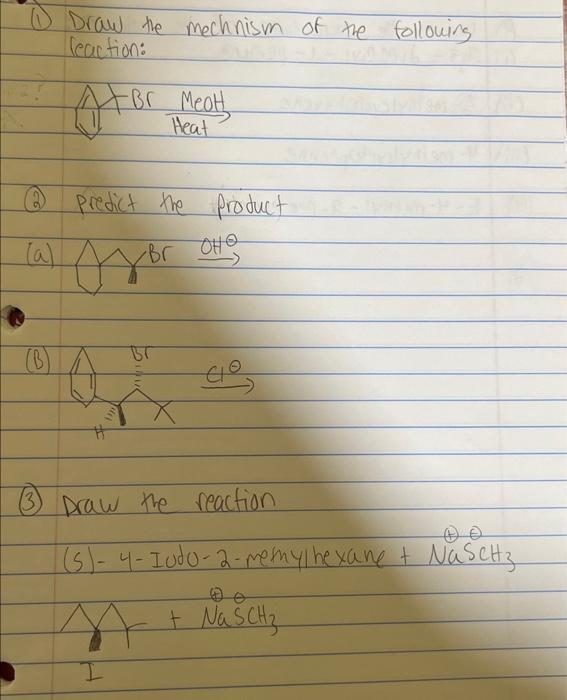 ① Draw the mechnism of the following
reaction:
Br MeOH
Heat
② predict the product
(a) Br OH⊖
(B) Br Cl⊖
H
③ Draw the reaction
(S)-4-Iodo-2-methylhexane + Na⊕S⊖CH3
+ Na⊕S⊖CH3
I